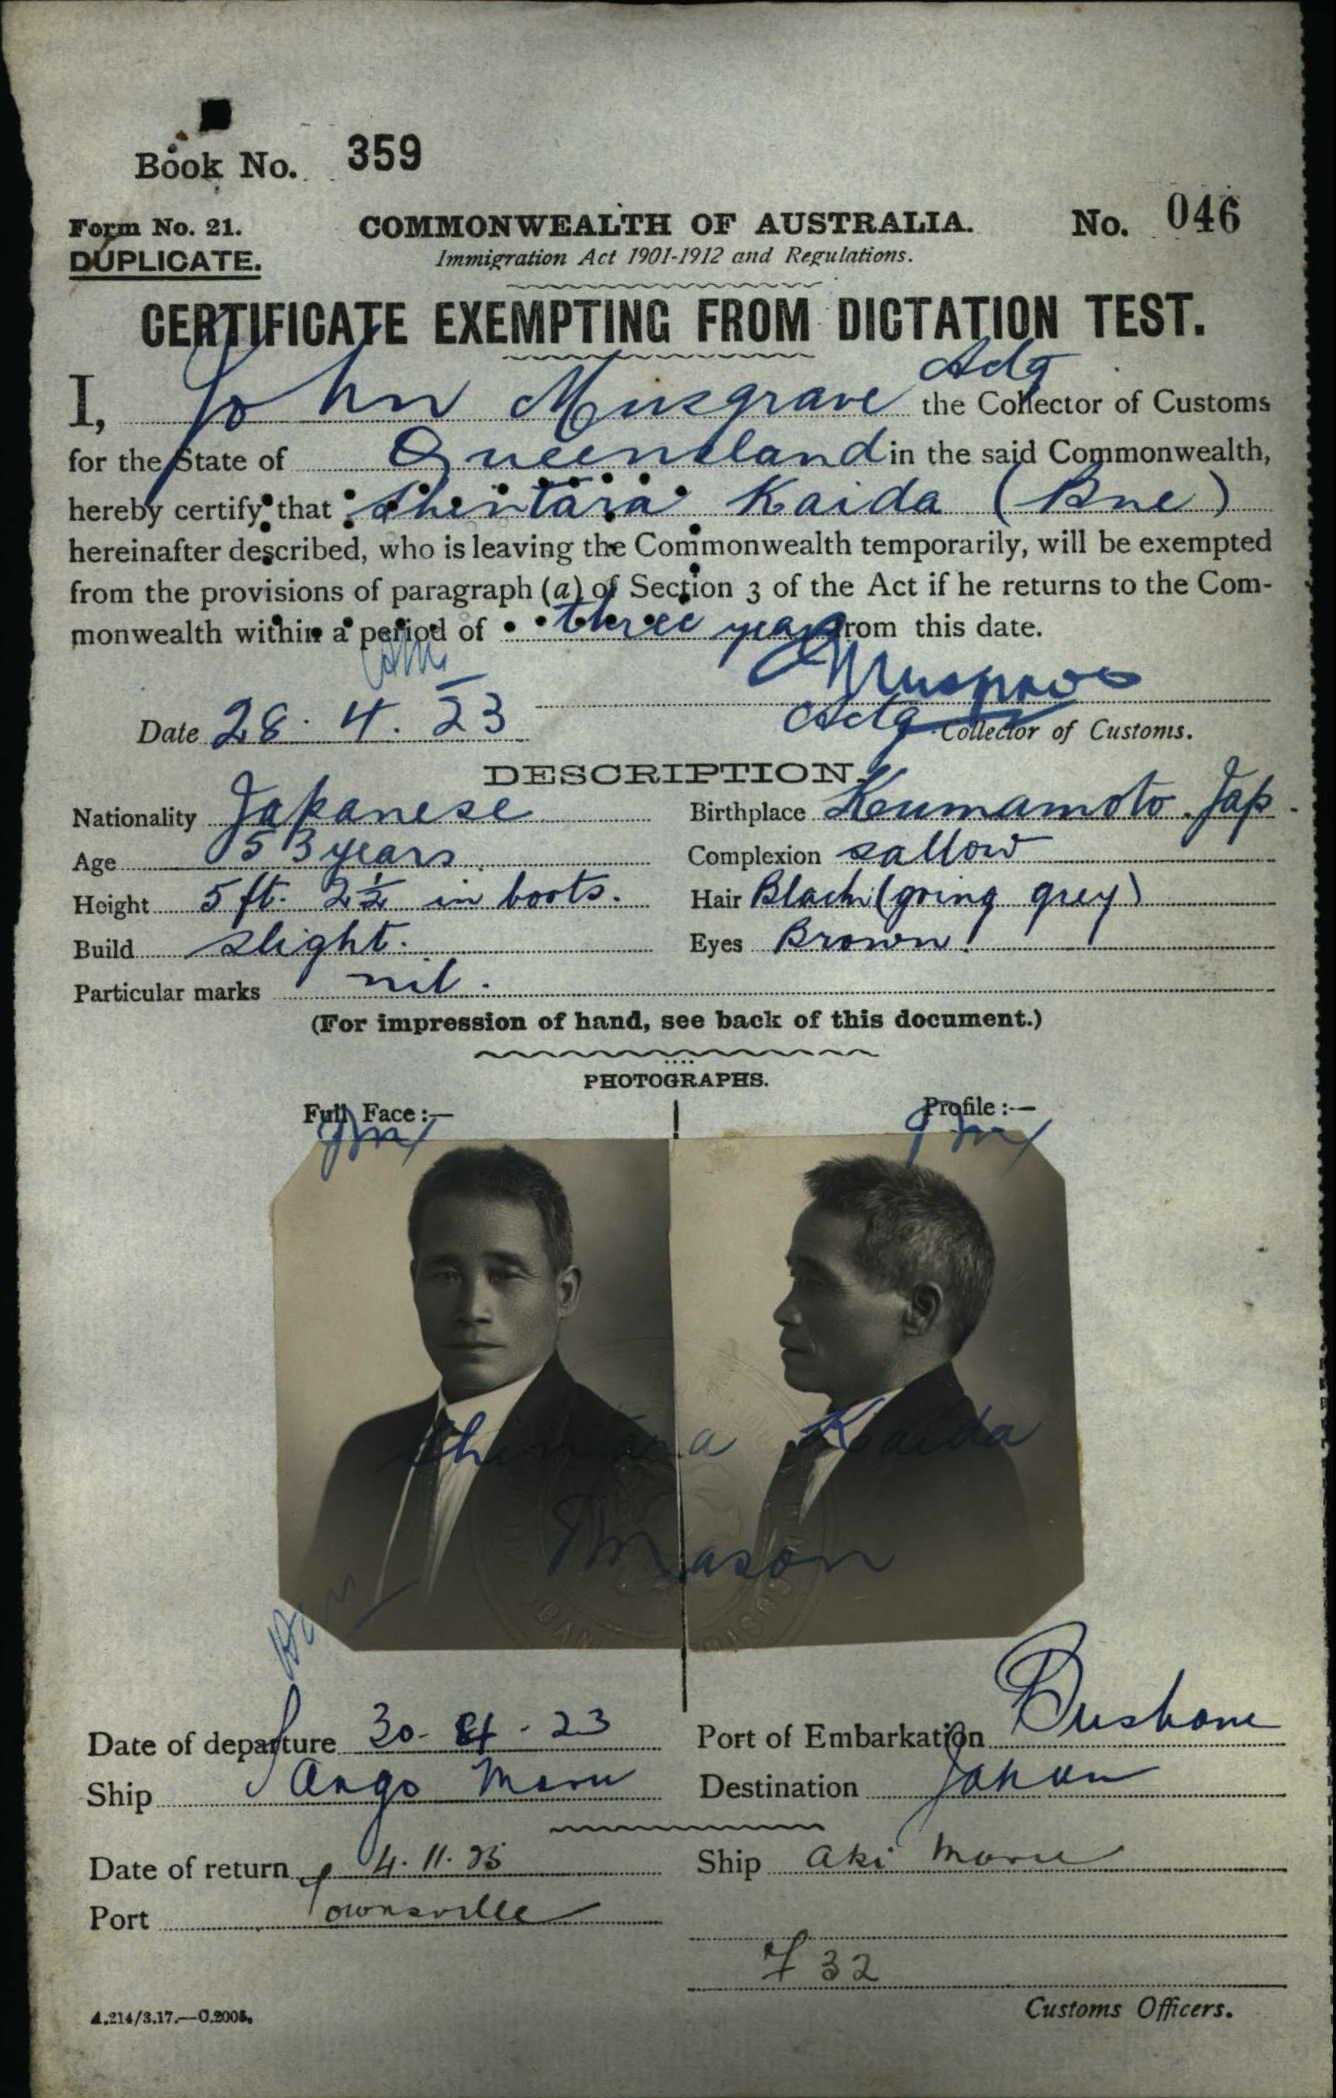 Book No. 359
Form No. 21.
COMMONWEALTH OF AUSTRALIA.
No. 046
DUPLICATE.
Immigration Act 1901-1912 and Regulations.
CERTIFICATE EXEMPTING FROM DICTATION TEST.
I, John Musgrave Actg the Collector of Customs
for the State of Queensland in the said Commonwealth,
hereby certify that Shintara Kaida (Bne)
hereinafter described, who is leaving the Commonwealth temporarily, will be exempted
from the provisions of paragraph (a) of Section 3 of the Act if he returns to the Com-
monwealth within a period of three years from this date.
JMusgrave
Date 28. 4. 23
Actg Collector of Customs.
DESCRIPTION.
Nationality Japanese
Birthplace Kumamoto. Jap.
Age 53 years
Complexion sallow
Height 5 ft. 2½ in boots.
Hair Black (going grey)
Build slight.
Eyes Brown.
Particular marks nil.
(For impression of hand, see back of this document.)
PHOTOGRAPHS.
Full Face:—
Profile:—
Shintara Kaida
Mason
Date of departure 30-4-23
Port of Embarkation Brisbane
Ship Ango Maru
Destination Japan
Date of return 4.11.25
Ship Aki Maru
Port Townsville
F 32
A.214/3.17.—C.2005.
Customs Officers.